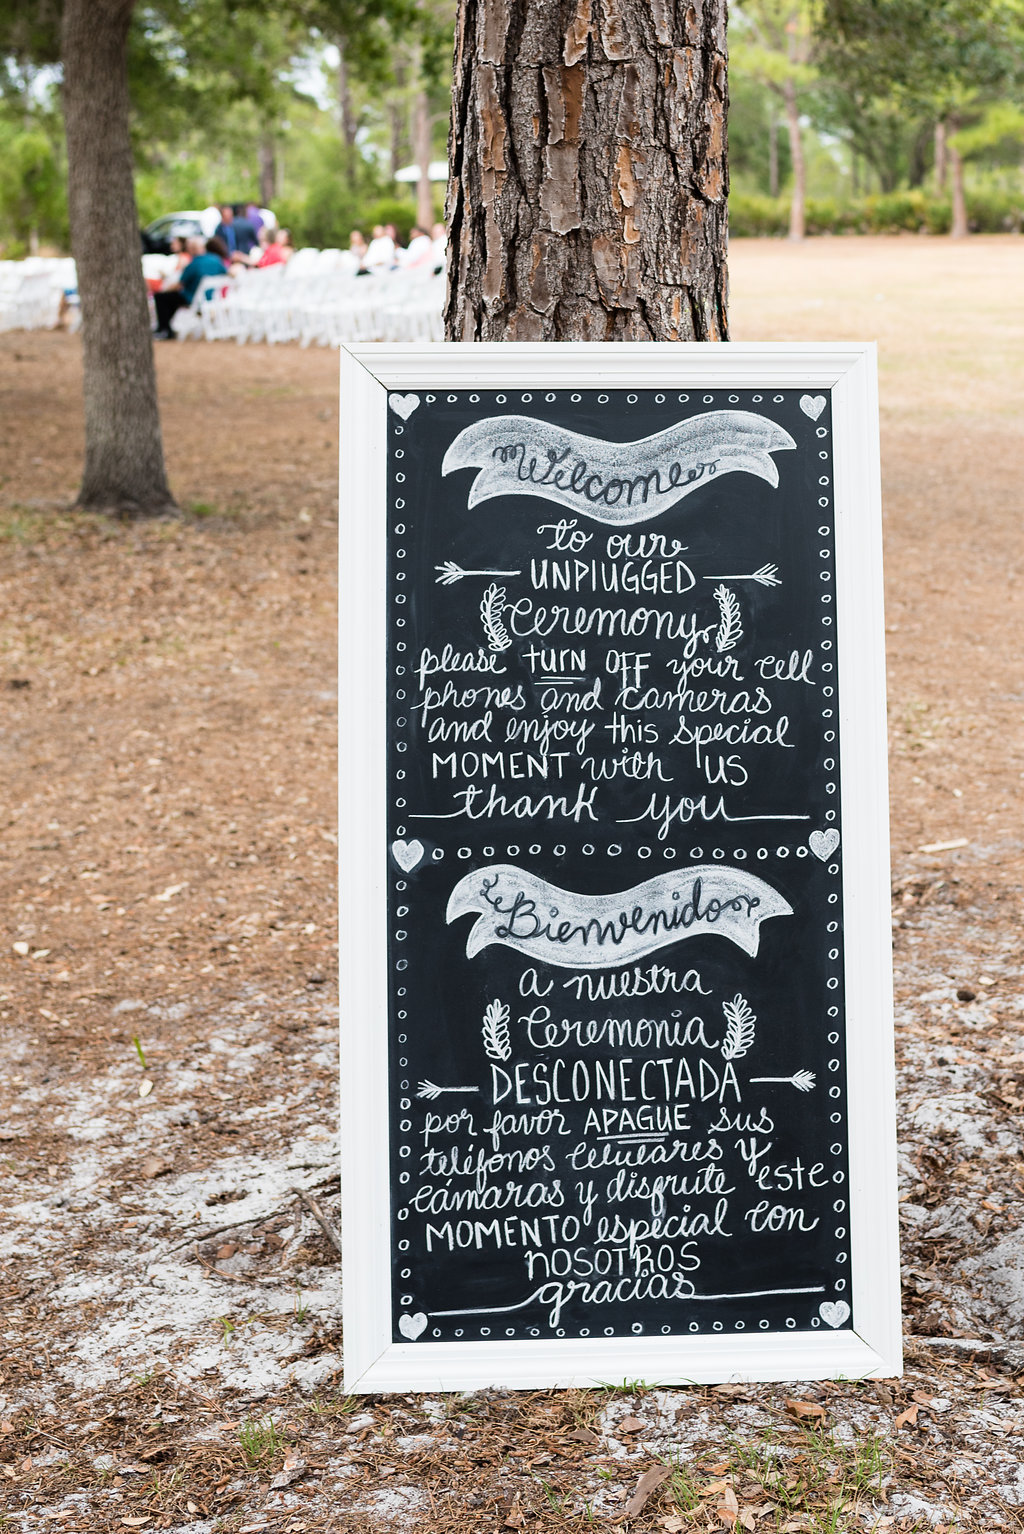 Welcome
to our
UNPLUGGED
Ceremony
please turn OFF your cell
phones and cameras
and enjoy this special
MOMENT with US
thank you
Bienvenidos
A nuestra
Ceremonia
DESCONECTADA
por favor APAGUE sus
teléfonos celulares y
cámaras y disfrute este
MOMENTO especial con
NOSOTROS
gracias